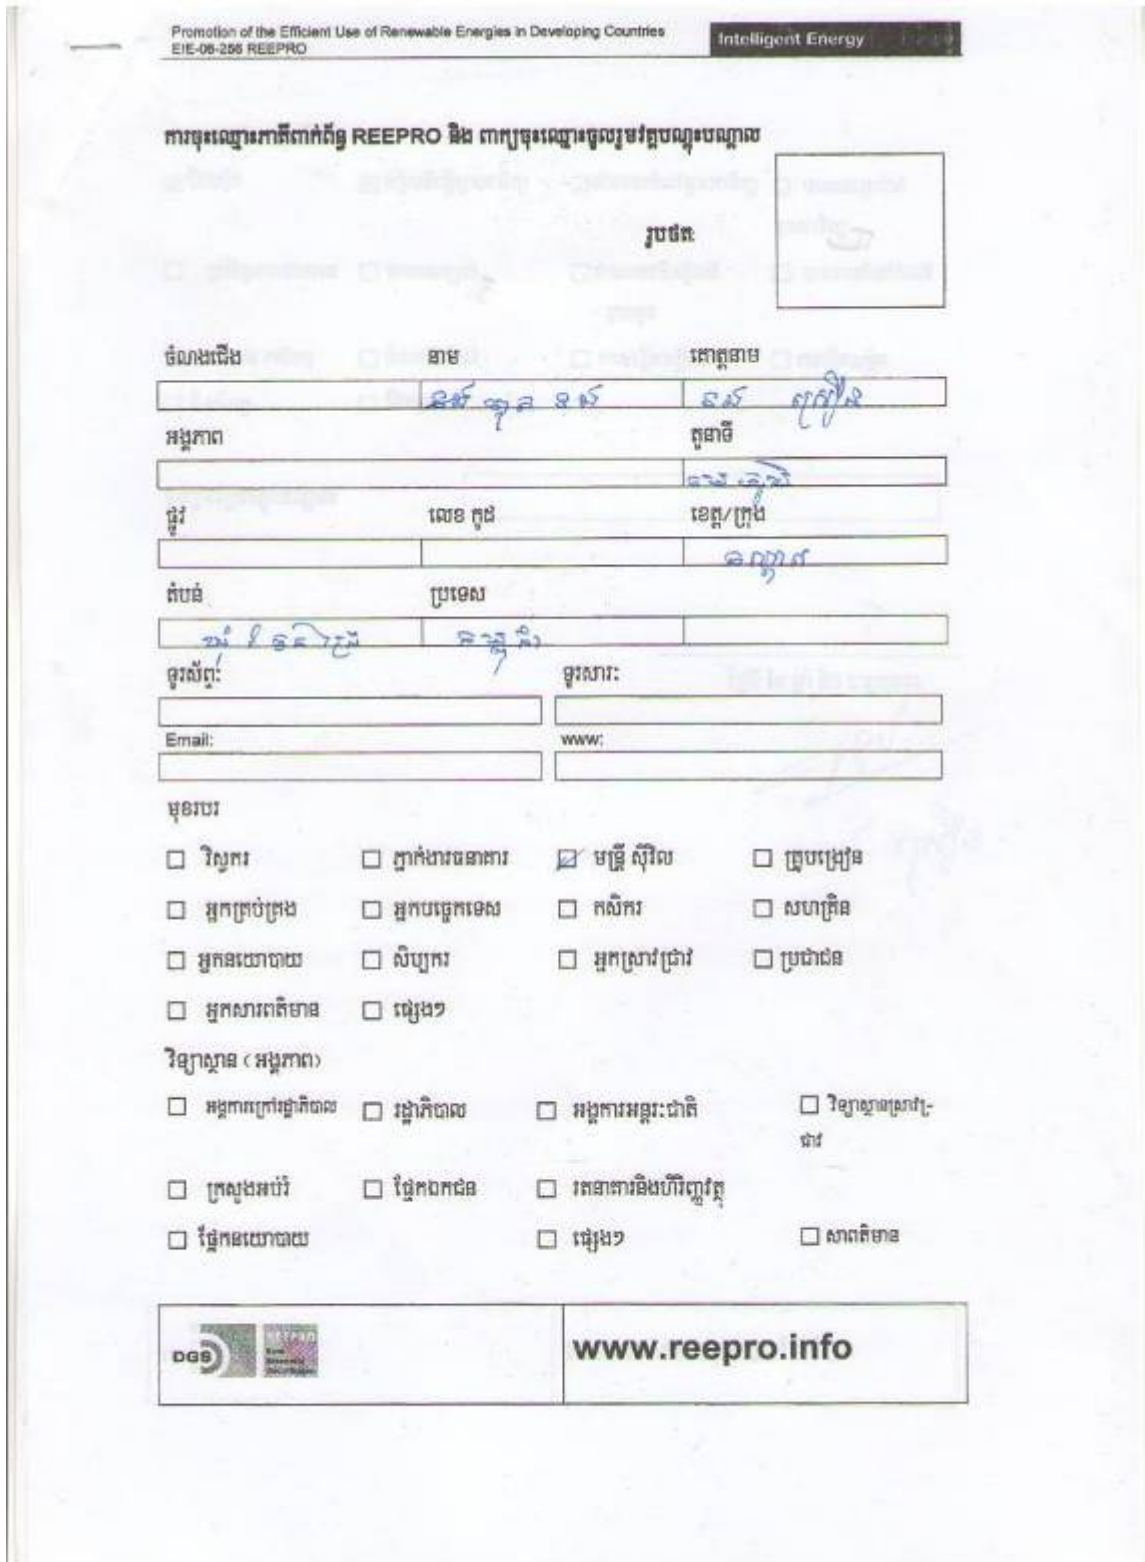 Promotion of the Efficient Use of Renewable Energies in Developing Countries
EIE-06-256 REEPRO
Intelligent Energy
ការចុះឈ្មោះភាគីពាក់ព័ន្ធ REEPRO និង ពាក្យចុះឈ្មោះចូលរួមវគ្គបណ្តុះបណ្តាល
រូបថត:
ចំណងជើង នាម គោត្តនាម
អង្គភាព តួនាទី
ផ្លូវ លេខ កូដ ខេត្ត/ក្រុង
កណ្តាល
តំបន់ ប្រទេស
ឃុំ កម្ពុជា
ទូរស័ព្ទ: ទូរសារ:
Email: www:
មុខរបរ
វិស្វករ ភ្នាក់ងារធនាគារ មន្ត្រី ស៊ីវិល គ្រូបង្រៀន
អ្នកគ្រប់គ្រង អ្នកបច្ចេកទេស កសិករ សហគ្រិន
អ្នកនយោបាយ សិប្បករ អ្នកស្រាវជ្រាវ ប្រជាជន
អ្នកសារពត៌មាន ផ្សេងៗ
វិទ្យាស្ថាន (អង្គភាព)
អង្គការក្រៅរដ្ឋាភិបាល រដ្ឋាភិបាល អង្គការអន្តរ:ជាតិ វិទ្យាស្ថានស្រាវជ្រ-
ជាវ
ក្រសួងអប់រំ ផ្នែកឯកជន រតនាគារនិងហិរិញ្ញវត្ថុ
ផ្នែកនយោបាយ ផ្សេងៗ សាពត៌មាន
DGS
www.reepro.info